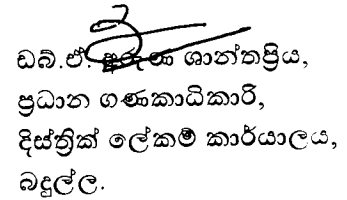 ඩබ්.ඒ. අරුණ ශාන්තප්‍රිය,
ප්‍රධාන ගණකාධිකාරි,
දිස්ත්‍රික් ලේකම් කාර්යාලය,
බදුල්ල.